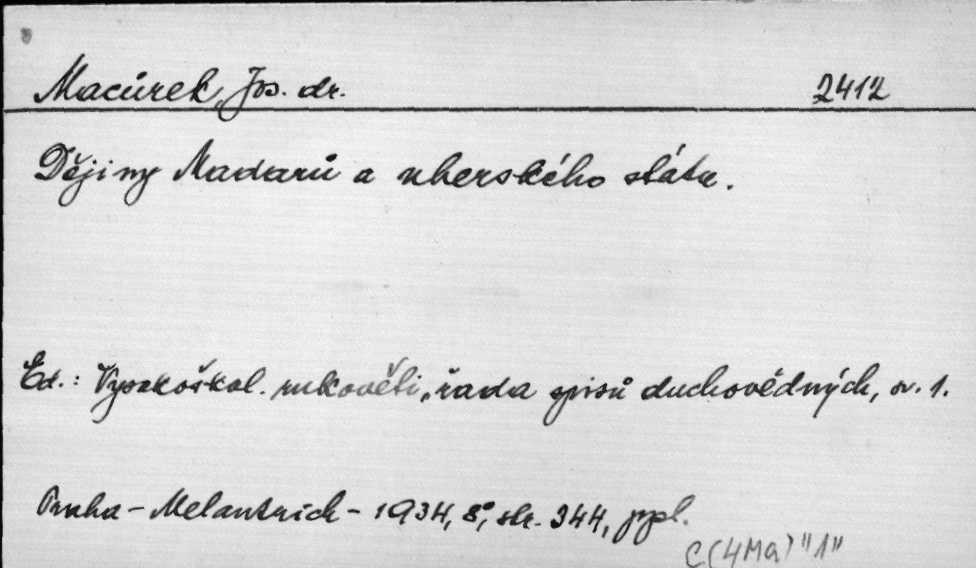 Macůrek, Jos. dr. 2412
Dějiny Maďarů a uherského státu.
Ed.: Vysokoškol. rukověti, řada spisů duchovědných, sv. 1.
Praha - Melantrich - 1934, 8°, str. 344, ppl.
C(4Ma)"1"